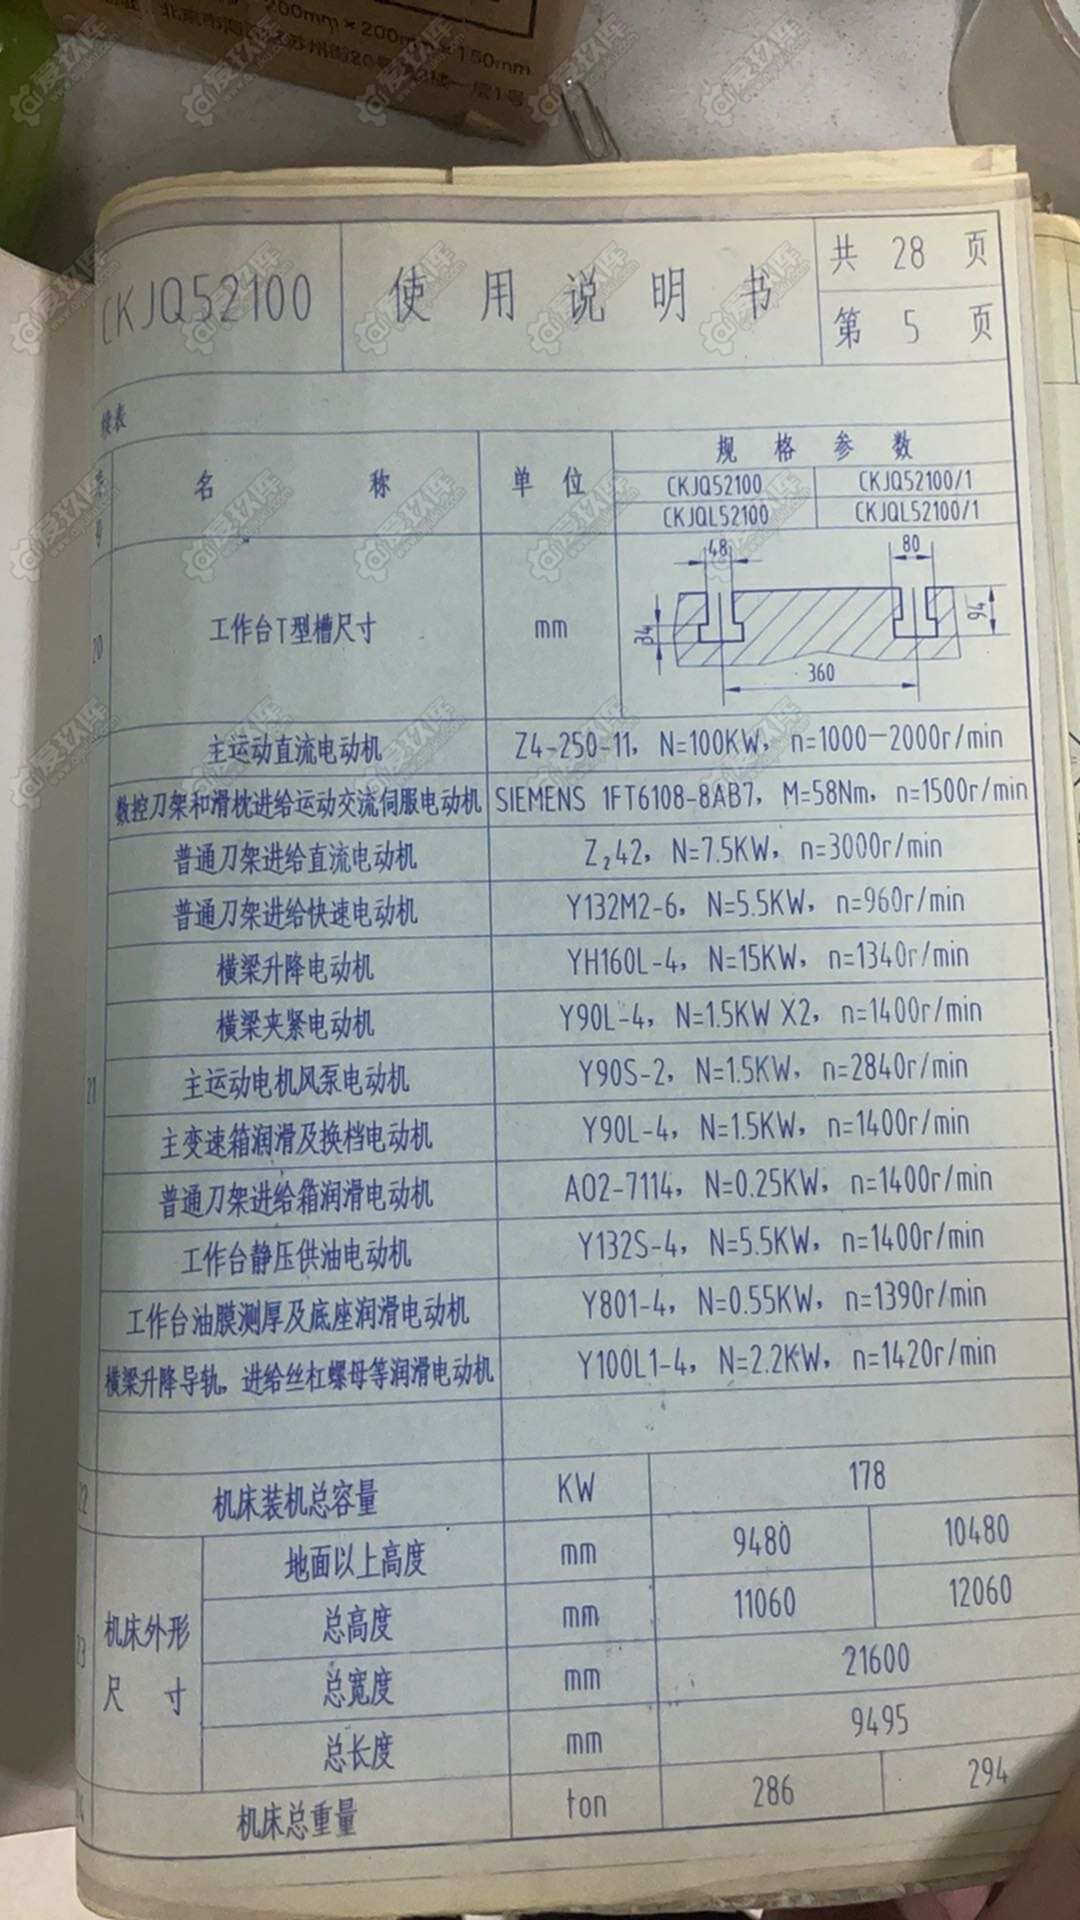 200mm×200mm×150mm
CKJQ52100
使用说明书
共 28 页
第 5 页
续表
名称
单位
规格参数
CKJQ52100
CKJQ52100/1
CKJQL52100
CKJQL52100/1
20
工作台T型槽尺寸
mm
48
80
34
94
360
主运动直流电动机
Z4-250-11, N=100KW, n=1000-2000r/min
数控刀架和滑枕进给运动交流伺服电动机
SIEMENS 1FT6108-8AB7, M=58Nm, n=1500r/min
普通刀架进给直流电动机
Z₂42, N=7.5KW, n=3000r/min
普通刀架进给快速电动机
Y132M2-6, N=5.5KW, n=960r/min
横梁升降电动机
YH160L-4, N=15KW, n=1340r/min
横梁夹紧电动机
Y90L-4, N=1.5KW X2, n=1400r/min
21
主运动电机风泵电动机
Y90S-2, N=1.5KW, n=2840r/min
主变速箱润滑及换档电动机
Y90L-4, N=1.5KW, n=1400r/min
普通刀架进给箱润滑电动机
AO2-7114, N=0.25KW, n=1400r/min
工作台静压供油电动机
Y132S-4, N=5.5KW, n=1400r/min
工作台油膜测厚及底座润滑电动机
Y801-4, N=0.55KW, n=1390r/min
横梁升降导轨，进给丝杠螺母等润滑电动机
Y100L1-4, N=2.2KW, n=1420r/min
机床装机总容量
KW
178
机床外形
尺寸
地面以上高度
mm
9480
10480
总高度
mm
11060
12060
总宽度
mm
21600
总长度
mm
9495
机床总重量
ton
286
294